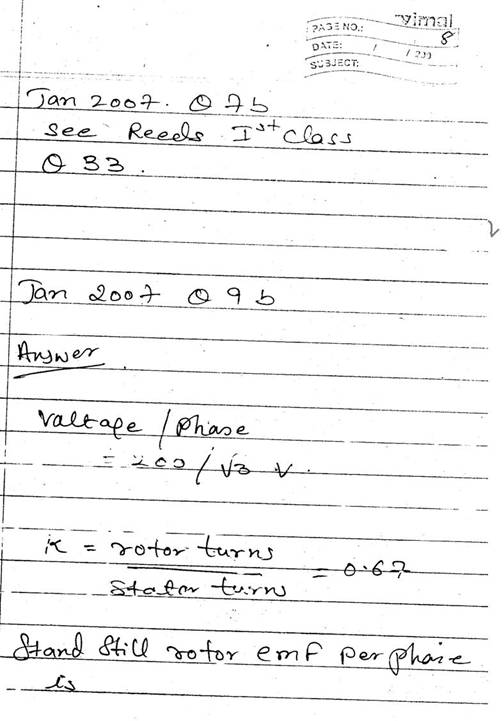 vimal
PAGE NO.: 8
DATE: / / 200
SUBJECT:
Jan 2007. Q 7b
see Reeds Ist class
Q 33.
Jan 2007 Q 9 b
Answer
Valtage / phase
= 200 / √3 V.
K = rotor turns
stator turns = 0.67
Stand still rotor emf per phase
is